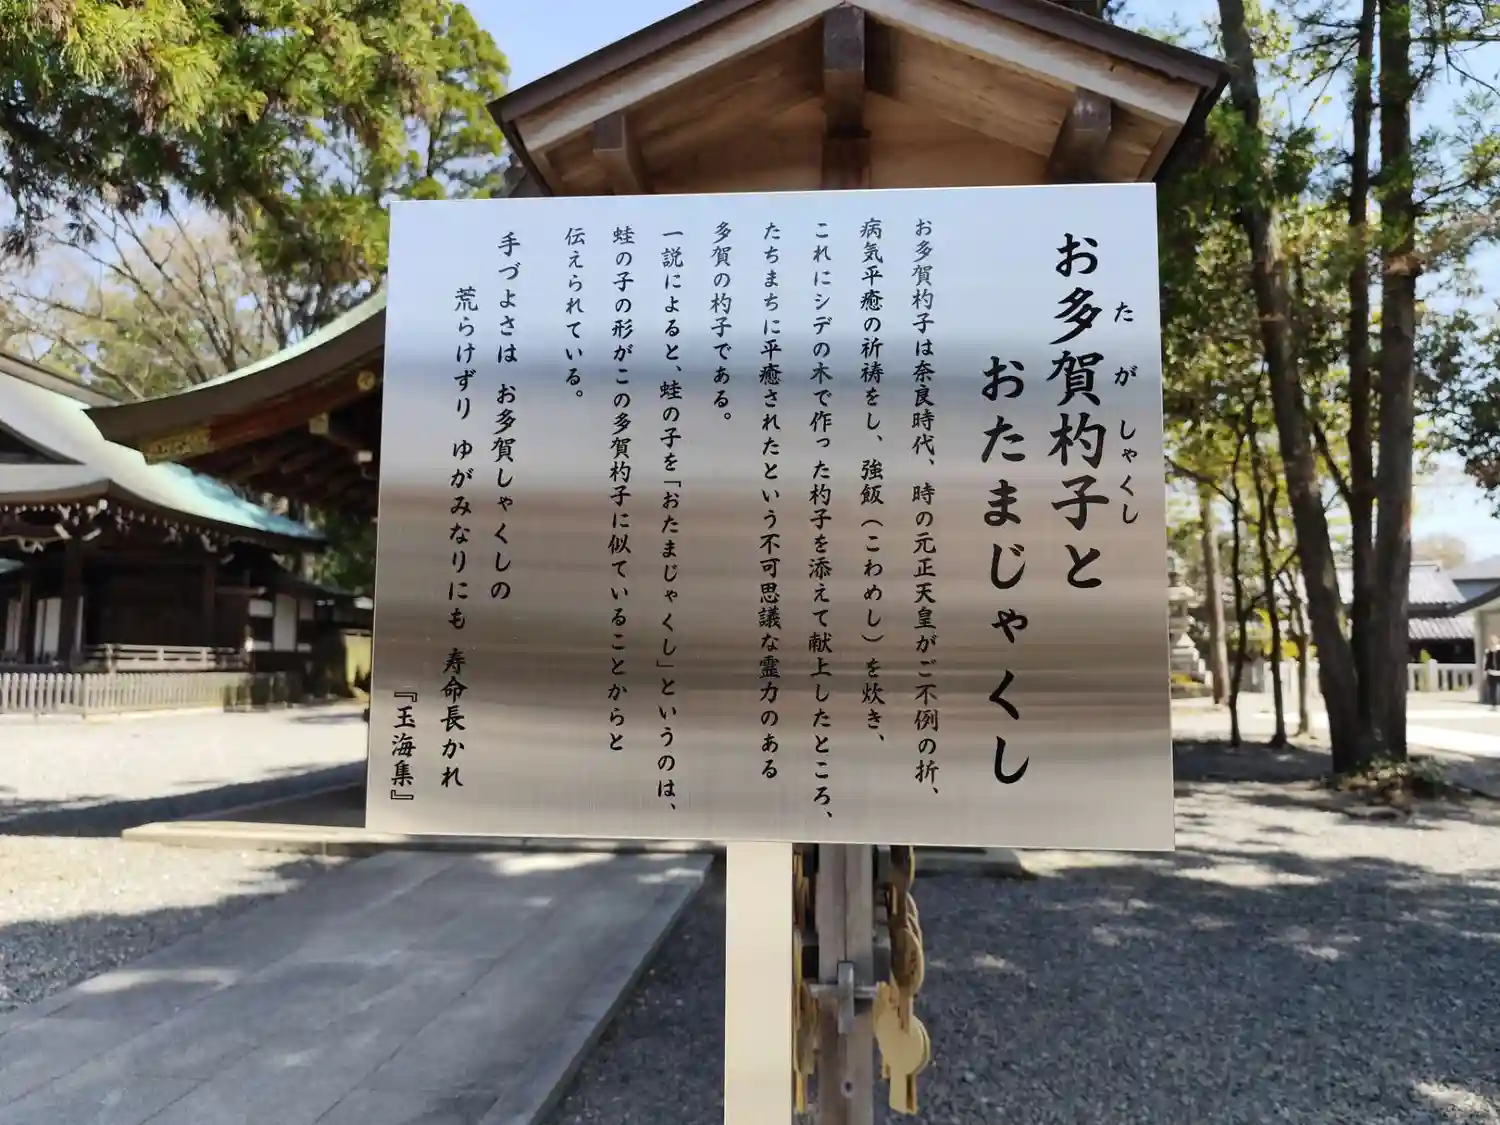 お多賀杓子と
たがしゃくし
おたまじゃくし
お多賀杓子は奈良時代、時の元正天皇がご不例の折、
病気平癒の祈祷をし、強飯(こわめし)を炊き、
これにシデの木で作った杓子を添えて献上したところ、
たちまちに平癒されたという不可思議な霊力のある
多賀の杓子である。
一説によると、蛙の子を「おたまじゃくし」というのは、
蛙の子の形がこの多賀杓子に似ていることからと
伝えられている。
手づよさは お多賀しゃくしの
荒らけずり ゆがみなりにも 寿命長かれ
『玉海集』